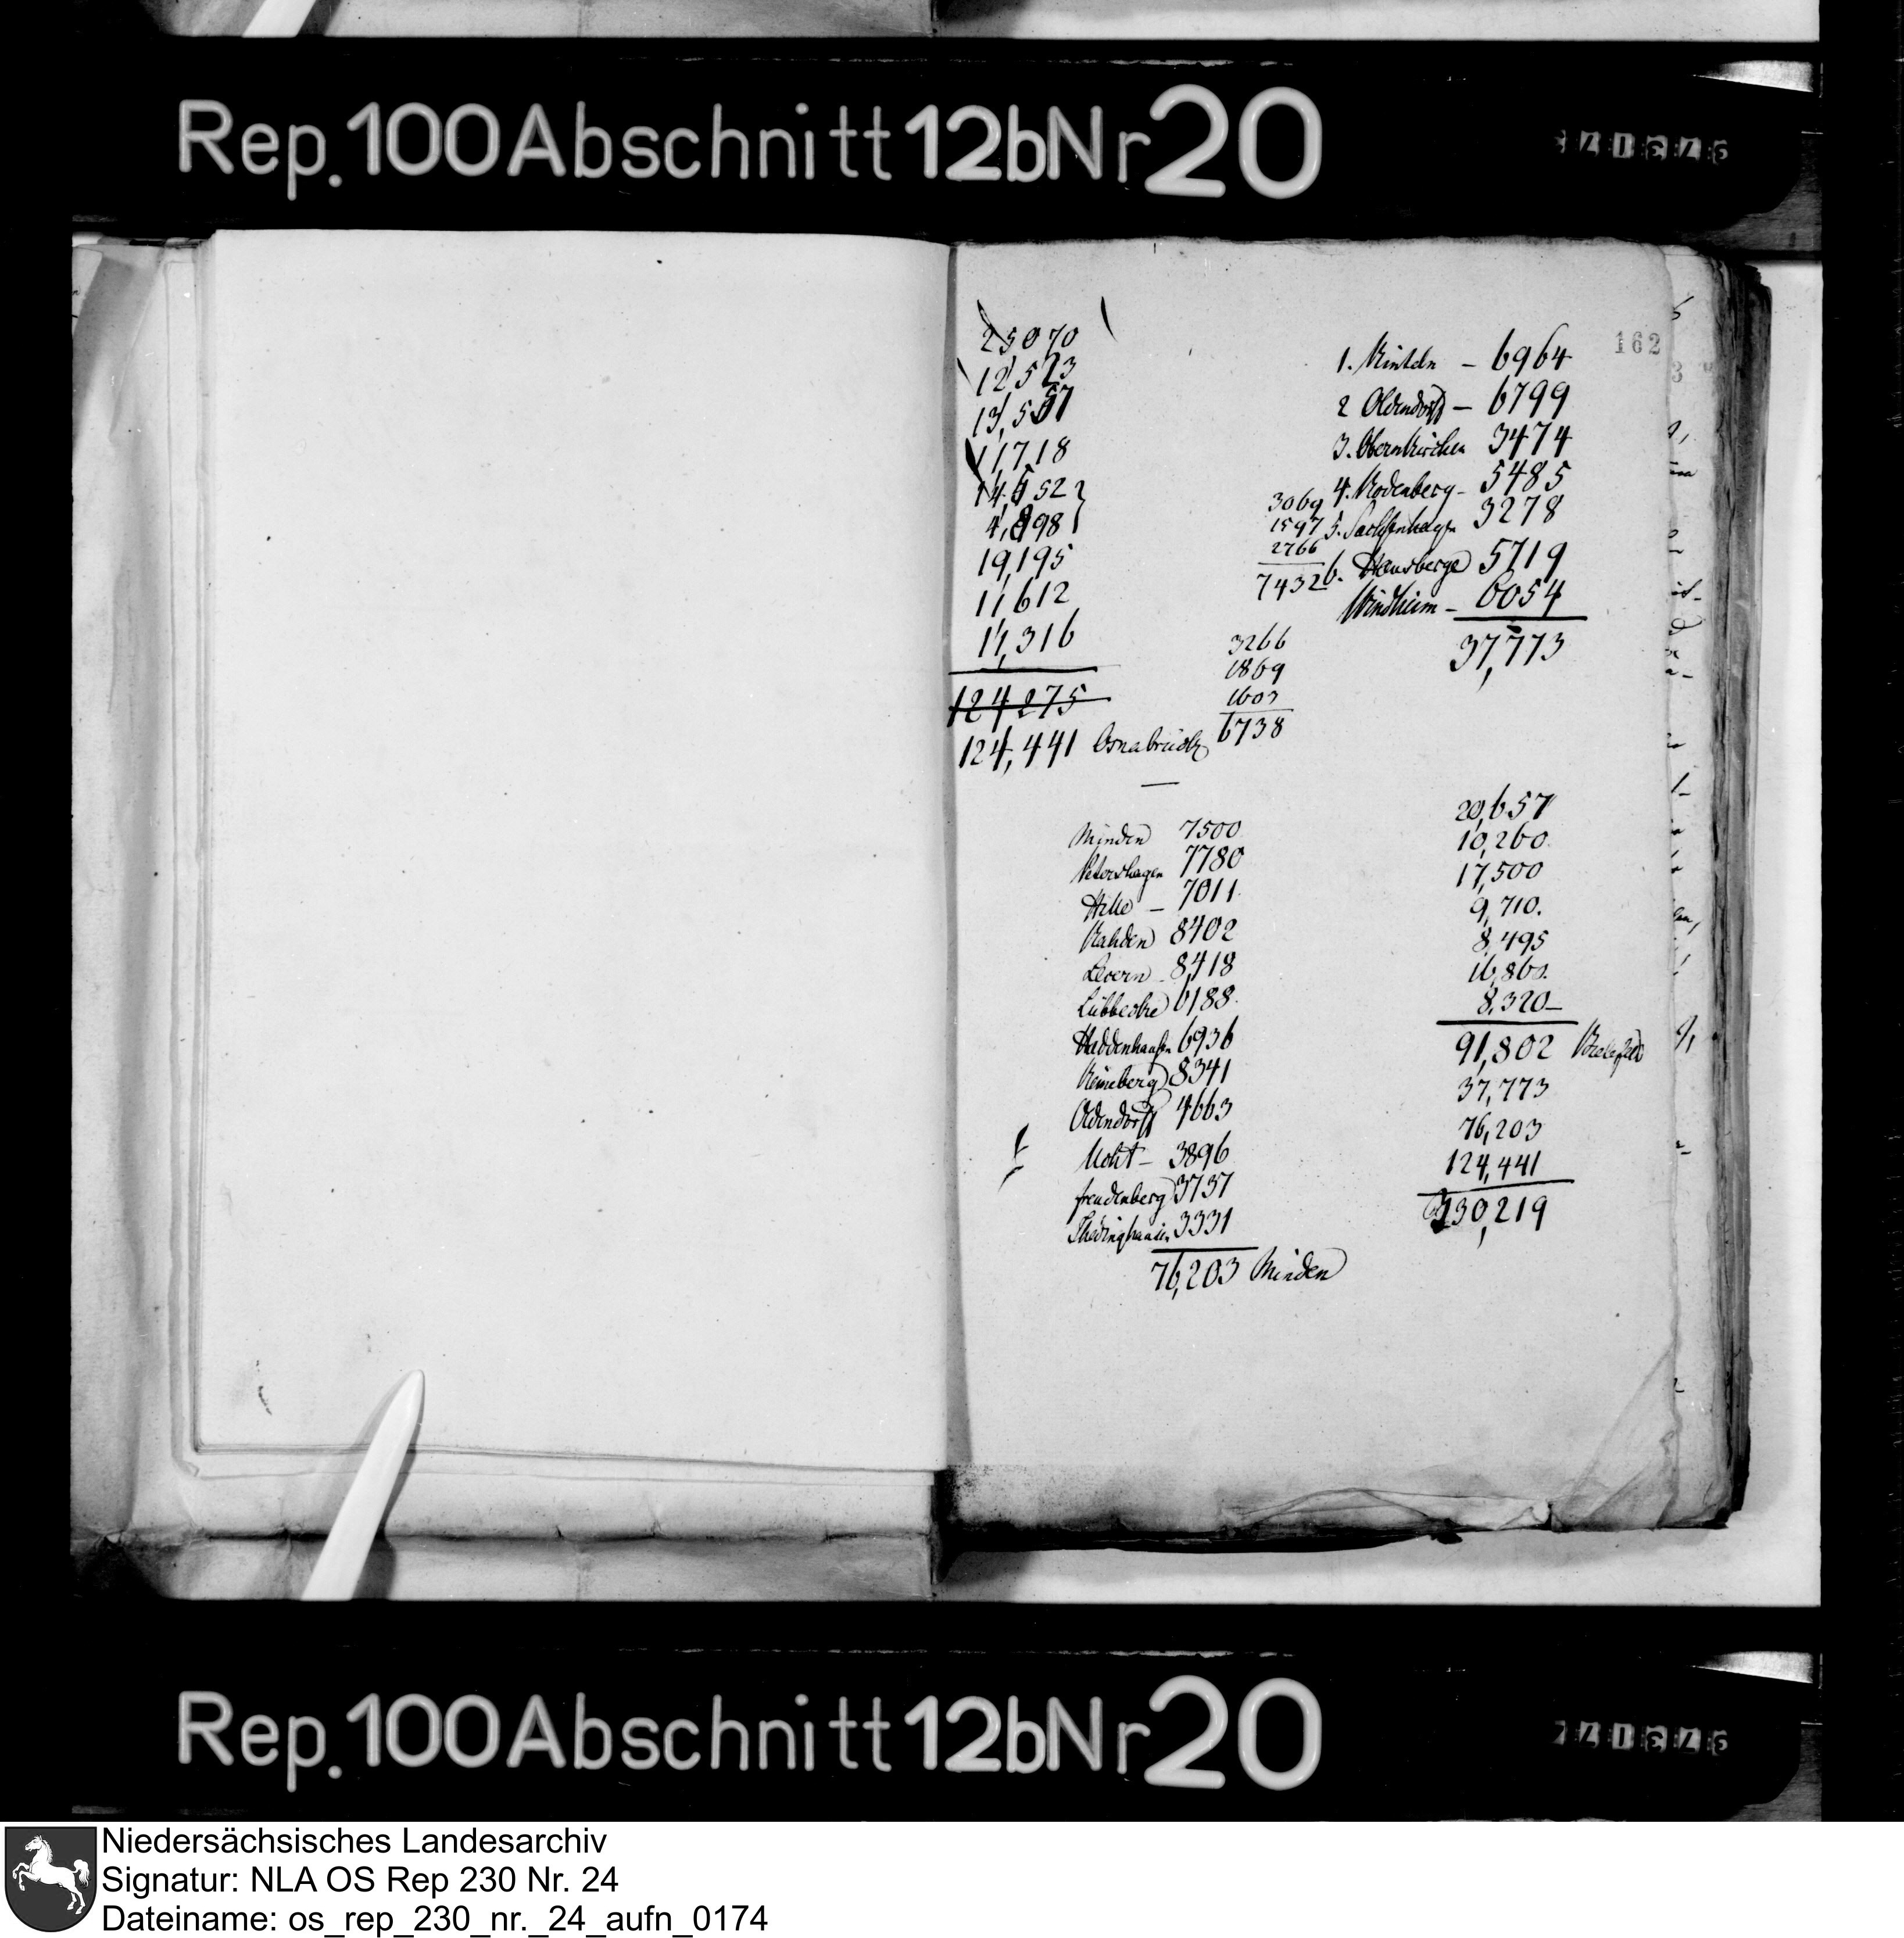 Rep. 100 Abschnitt 12b Nr 20
162
25070
12523
13,557
11,718
14.652
4,898
19,195
11612
11,316
124275
124,441 Osnabrück
1. Rinteln - 6964
2 Oldendorff - 6799
3. Obernkirchen 3474
4. Rodenberg - 5485
5. Sachsenhagen 3278
6. Hausberge 5719
Windheim - 6054
37,773
3069
1597
2766
7432
3266
1869
1603
6738
Minden 7500
Petershagen 7780
Hille - 7011
Rahden 8402
Levern - 8,418
Lübbecke 6188
Haddenhausen 6936
Reineberg 8341
Oldendorff 4663
Ucht - 3896
Freudenberg 3737
Thedinghausen 3331
76,203 Minden
20,657
10,260
17,500
9,710.
8,495
16,860.
8,320 -
91,802 Bielefeld
37,773
76,203
124,441
330,219
Rep. 100 Abschnitt 12b Nr 20
Niedersächsisches Landesarchiv
Signatur: NLA OS Rep 230 Nr. 24
Dateiname: os_rep_230_nr._24_aufn_0174